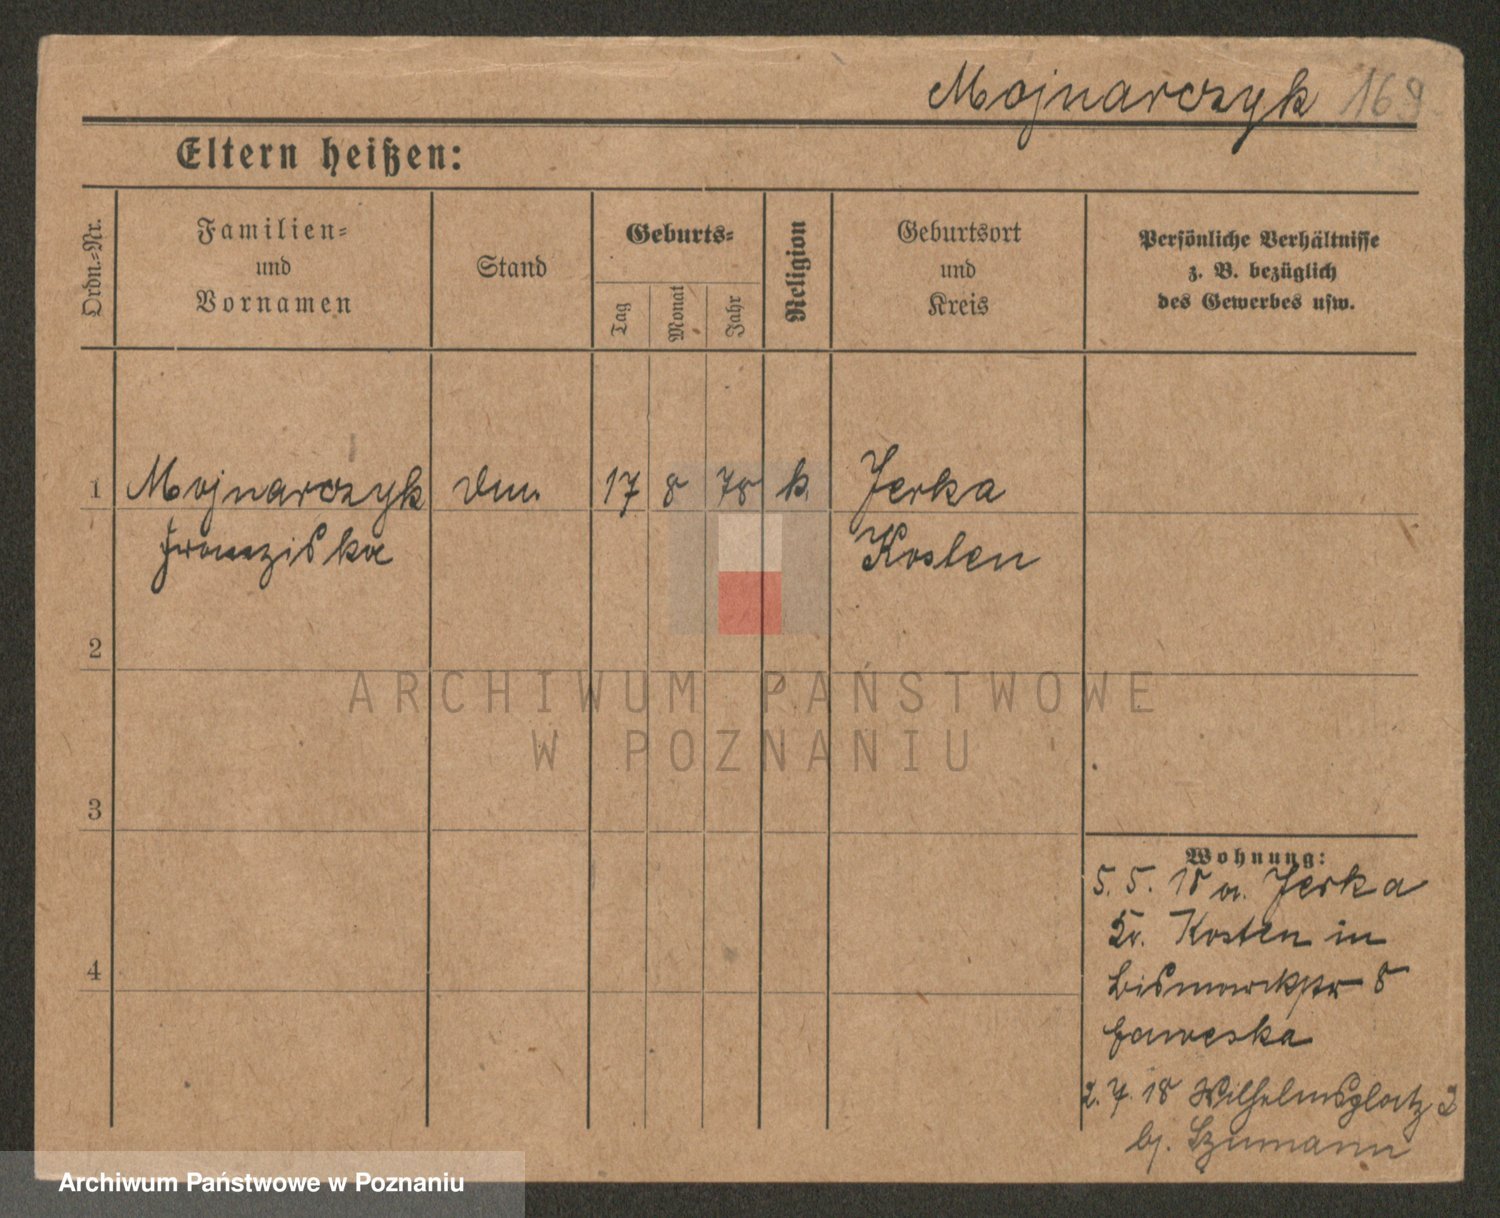 Mojnarczyk 169
Eltern heißen:
Ordn.-Nr.
Familien-
und
Vornamen
Stand
Geburts-
Tag
Monat
Jahr
Religion
Geburtsort
und
Kreis
Persönliche Verhältnisse
z. B. bezüglich
des Gewerbes usw.
1 Mojnarczyk 17 8 78 k. Jerka
Franziska Kosten
2
3
4
Wohnung:
5. 5. 18 a. Jerka
Kr. Kosten in
Bismarckstr 8
2. 7. 18 Wilhelmsplatz 2
bj. Szumann
ARCHIWUM PAŃSTWOWE
W POZNANIU
Archiwum Państwowe w Poznaniu